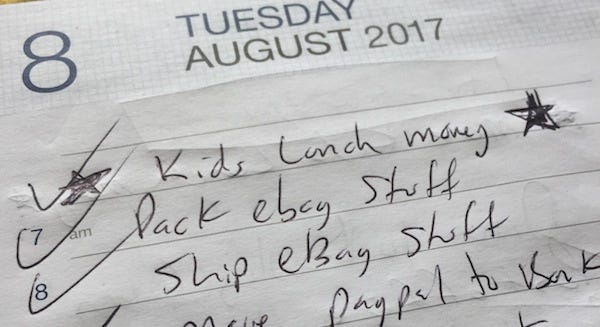 8 TUESDAY
AUGUST 2017
Kids Lunch money
7 am Pack ebay Stuff
8 Ship eBay Stuff
move Paypal to Bank